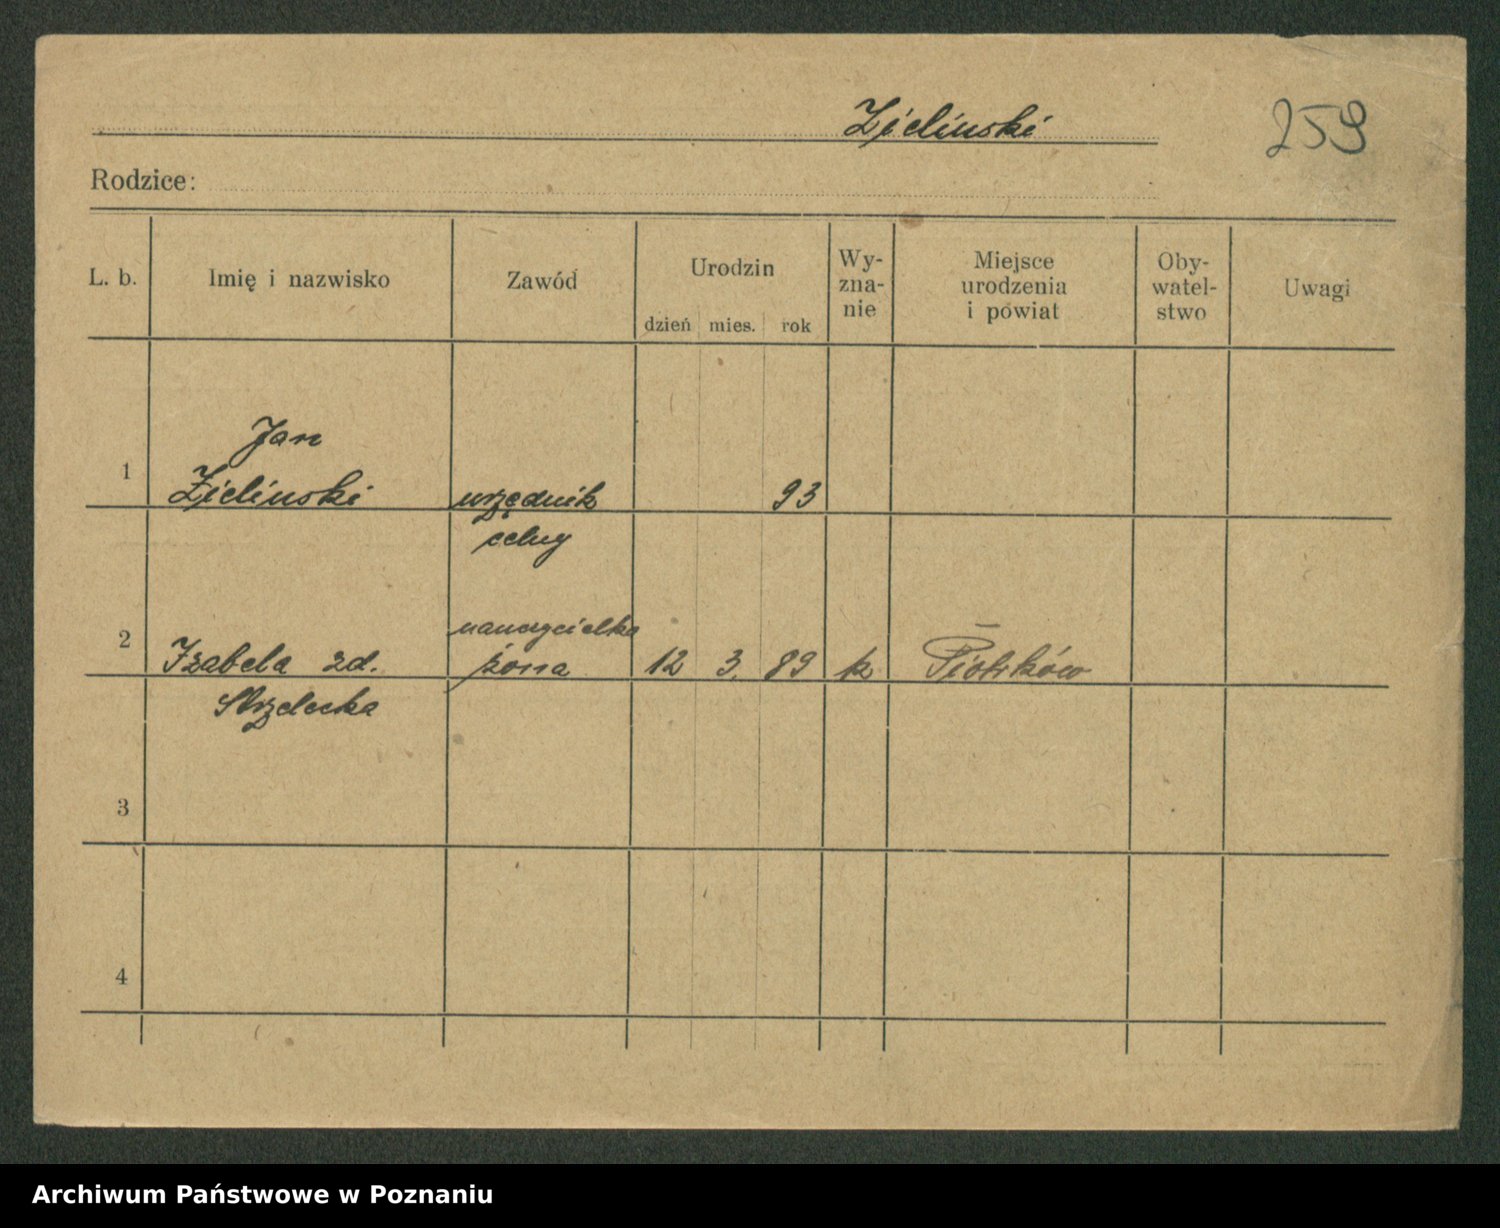 Zieliński
259
Rodzice:
L. b.
Imię i nazwisko
Zawód
Urodzin
dzień mies. rok
Wy-
zna-
nie
Miejsce
urodzenia
i powiat
Oby-
watel-
stwo
Uwagi
1
Jan
Zieliński
urzędnik
celny
93
2
Izabela zd.
Strzelecka
nauczycielka
żona
12 3. 89
k
Piotrków
3
4
Archiwum Państwowe w Poznaniu